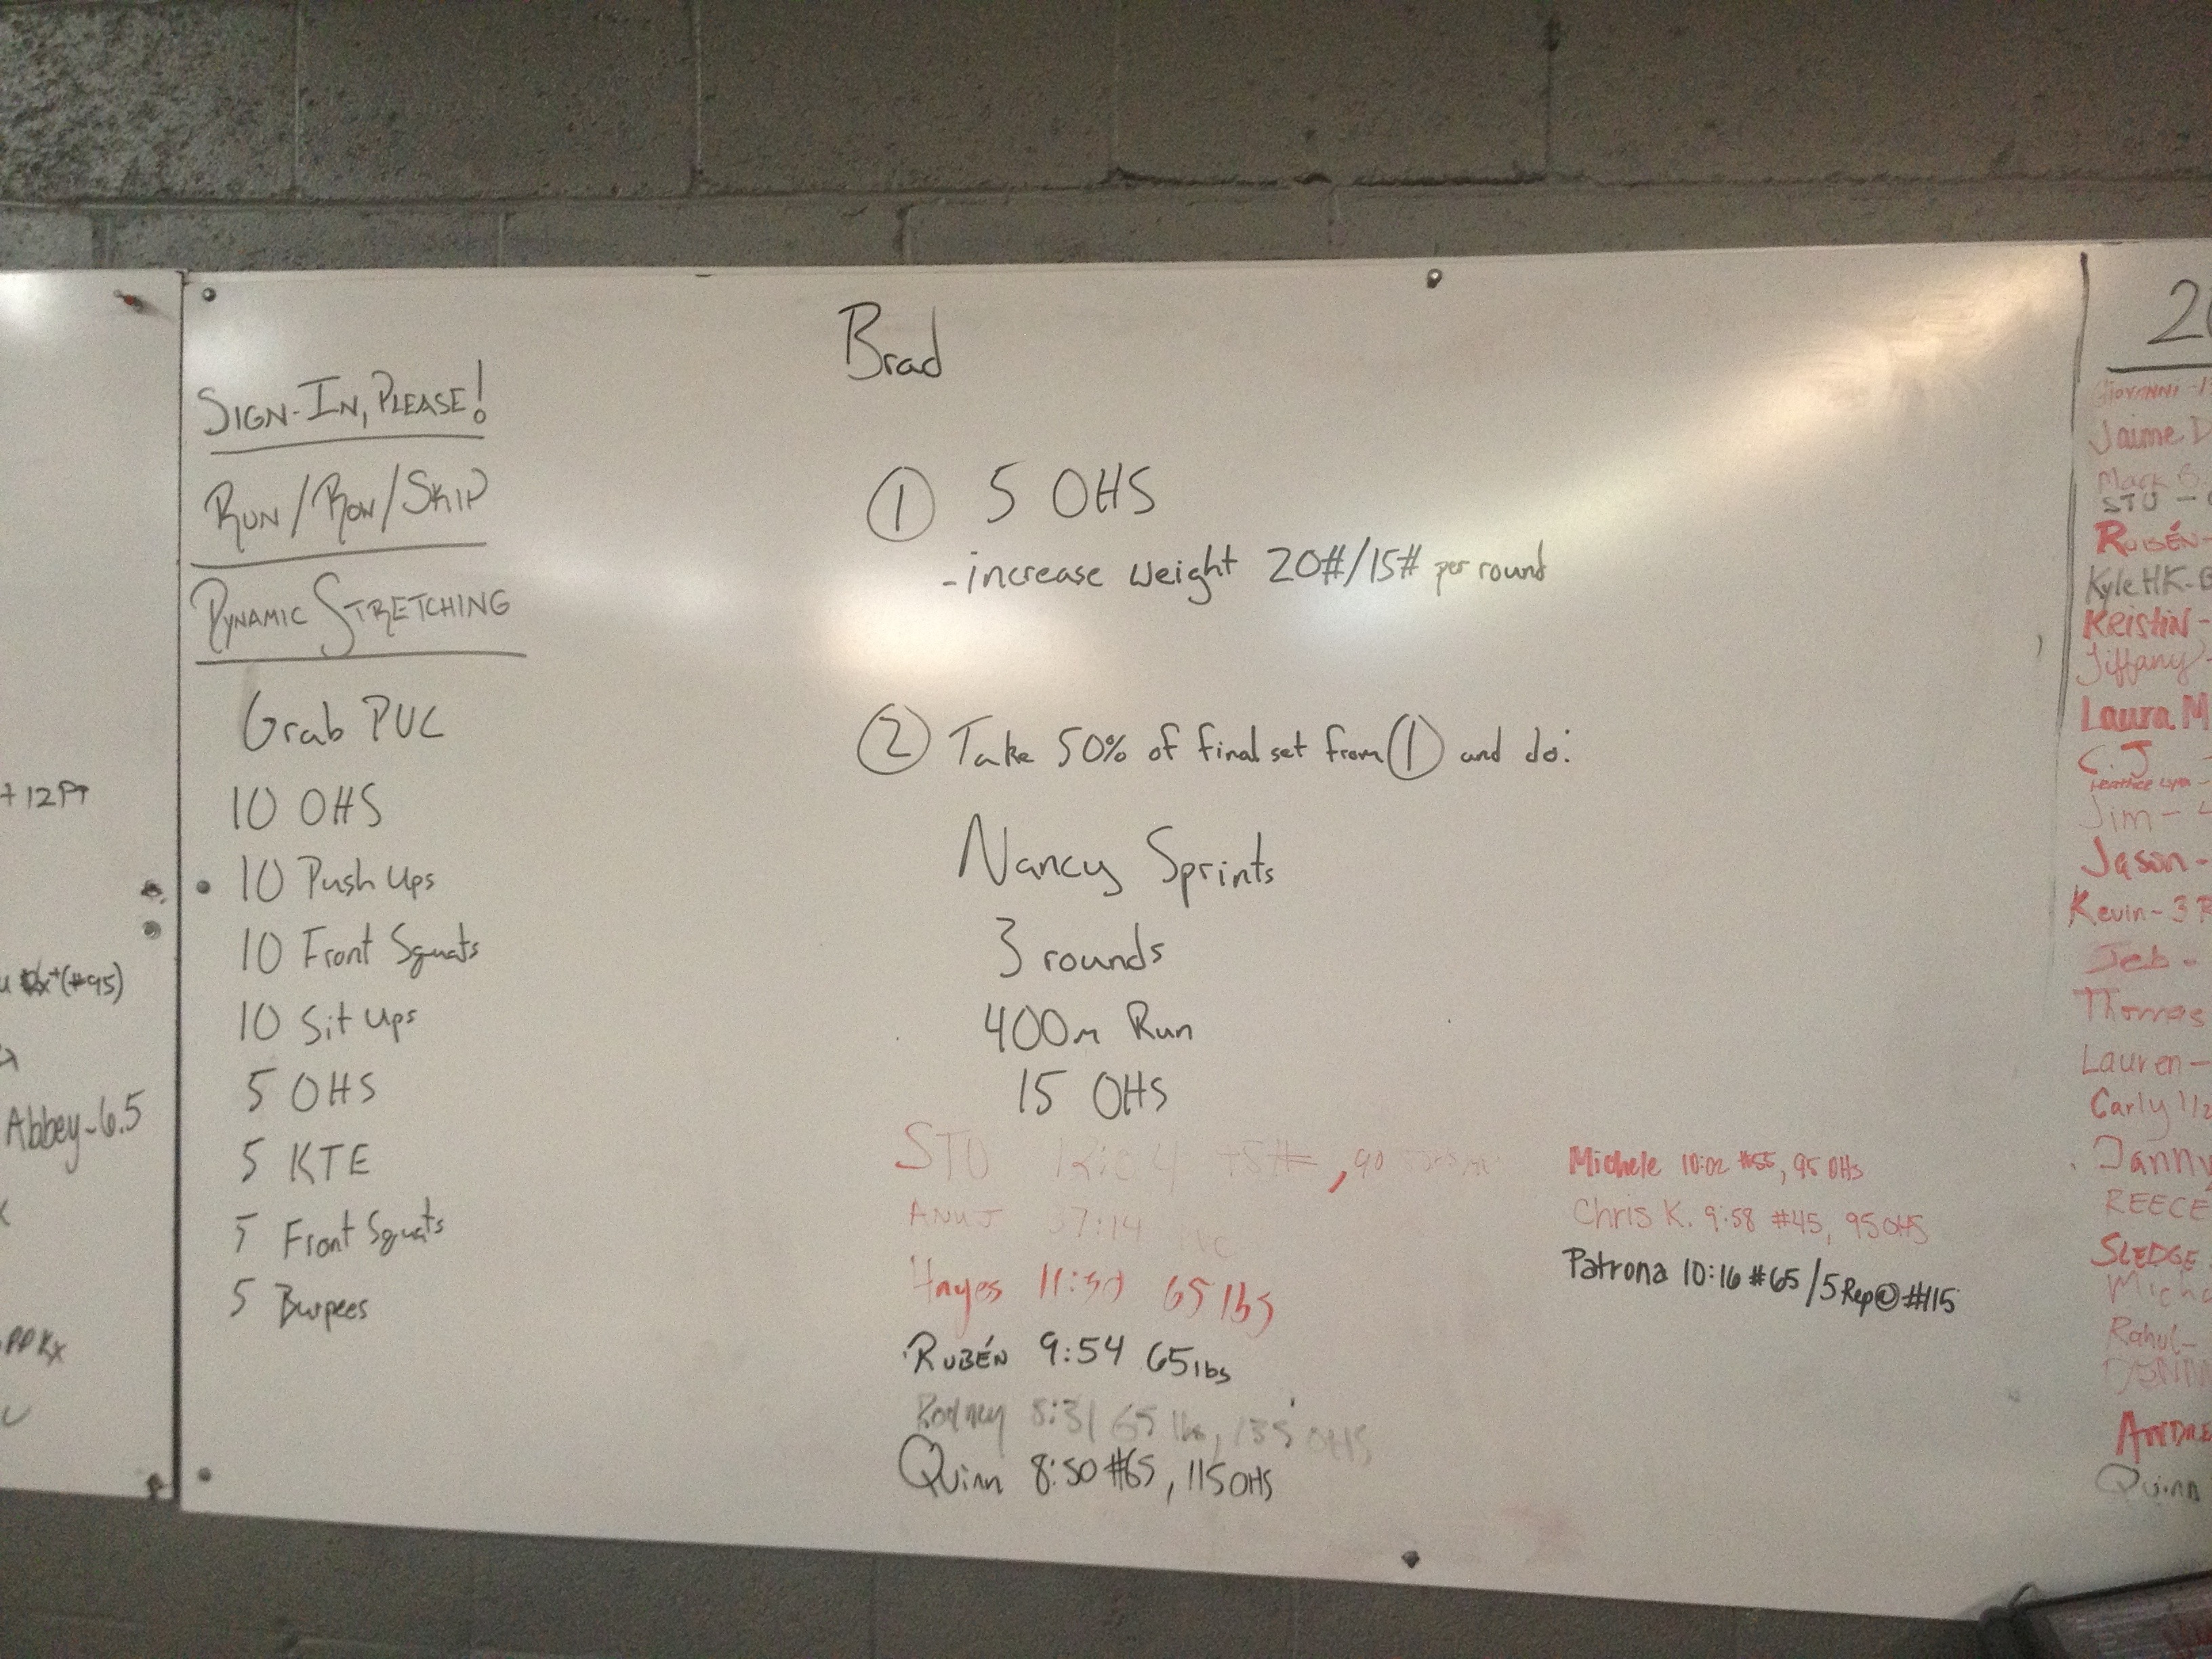 + 12 PT
(#95)
Abbey-6.5
SIGN-IN, PLEASE!
RUN/ROW/SKIP
DYNAMIC STRETCHING
Grab PVC
10 OHS
10 Push Ups
10 Front Squats
10 Sit Ups
5 OHS
5 KTE
5 Front Squats
5 Burpees
Brad
① 5 OHS
-increase weight 20#/15# per round
② Take 50% of final set from ① and do:
Nancy Sprints
3 rounds
400m Run
15 OHS
STU
ANUJ 37:14
Hayes 11:30 65 lbs
RUBÉN 9:54 65lbs
Rodney 8:31 65 lbs, 135 OHS
Quinn 8:50 #65, 115 OHS
Michele 10:02 #55, 95 OHS
Chris K. 9:58 #45, 95 OHS
Patrona 10:16 #65/5 Rep@#115
GIOVANNI
Jaime D
Mark
STU -
RUBÉN-
Kyle HK-
Kristin-
Tiffany-
Laura M
C.J
Jim-
Jason-
Kevin-3 R
Jeb-
Thomas
Lauren-
Carly 1/2
Danny
REECE
SLEDGE
Micha
Rahul-
ANDRE
Quinn